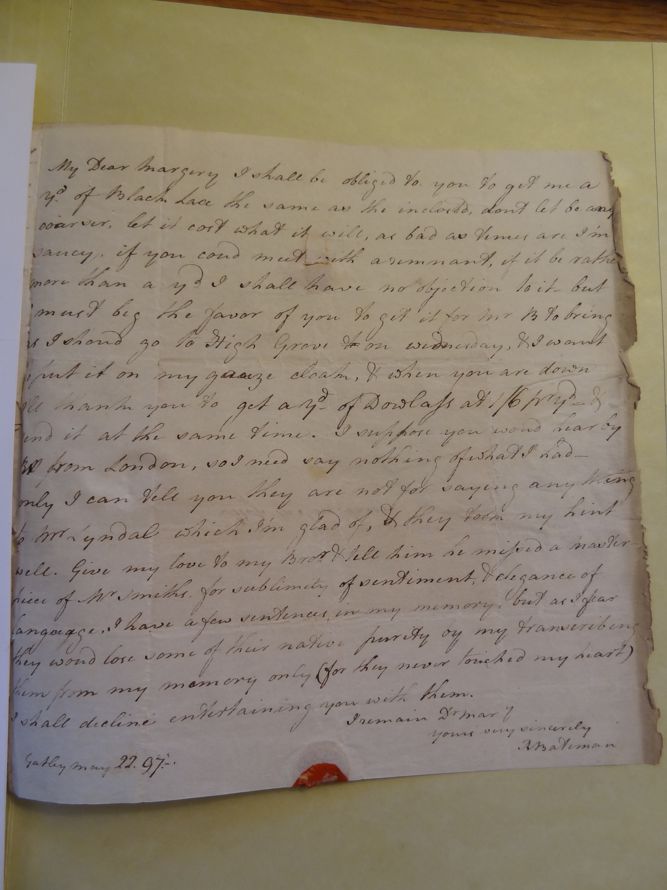 My Dear Margery I shall be obliged to you to get me a
yd of Black Lace the same as the inclos'd, dont let be any
coarser, let it cost what it will, as bad as times are I'm
saucy, if you coud meet with a remnant, if it be rather
more than a yd I shall have no objection to it but
must beg the favor of you to get it for Mr B to bring
as I shoud go to High Grove on wednesday, & I want
put it on my gauze cloak, & when you are down
thank you to get a yd of Dowlass at 1/6 pr yd &
send it at the same time. I suppose you woud hear by
from London, so I need say nothing of what I had
only I can tell you they are not for saying any thing
to Mrs Lyndal which I'm glad of, & they took my hint
well. Give my love to my Bror & tell him he missed a master
piece of Mr Smiths for sublimity of sentiment, & elegance of
language, I have a few sentences in my memory, but as I fear
they woud lose some of their native purity by my transcribing
them from my memory only (for they never touched my heart)
I shall decline entertaining you with them.
I remain Dr Mary
yours very sincerely
RBateman
Gatley May 22. 97